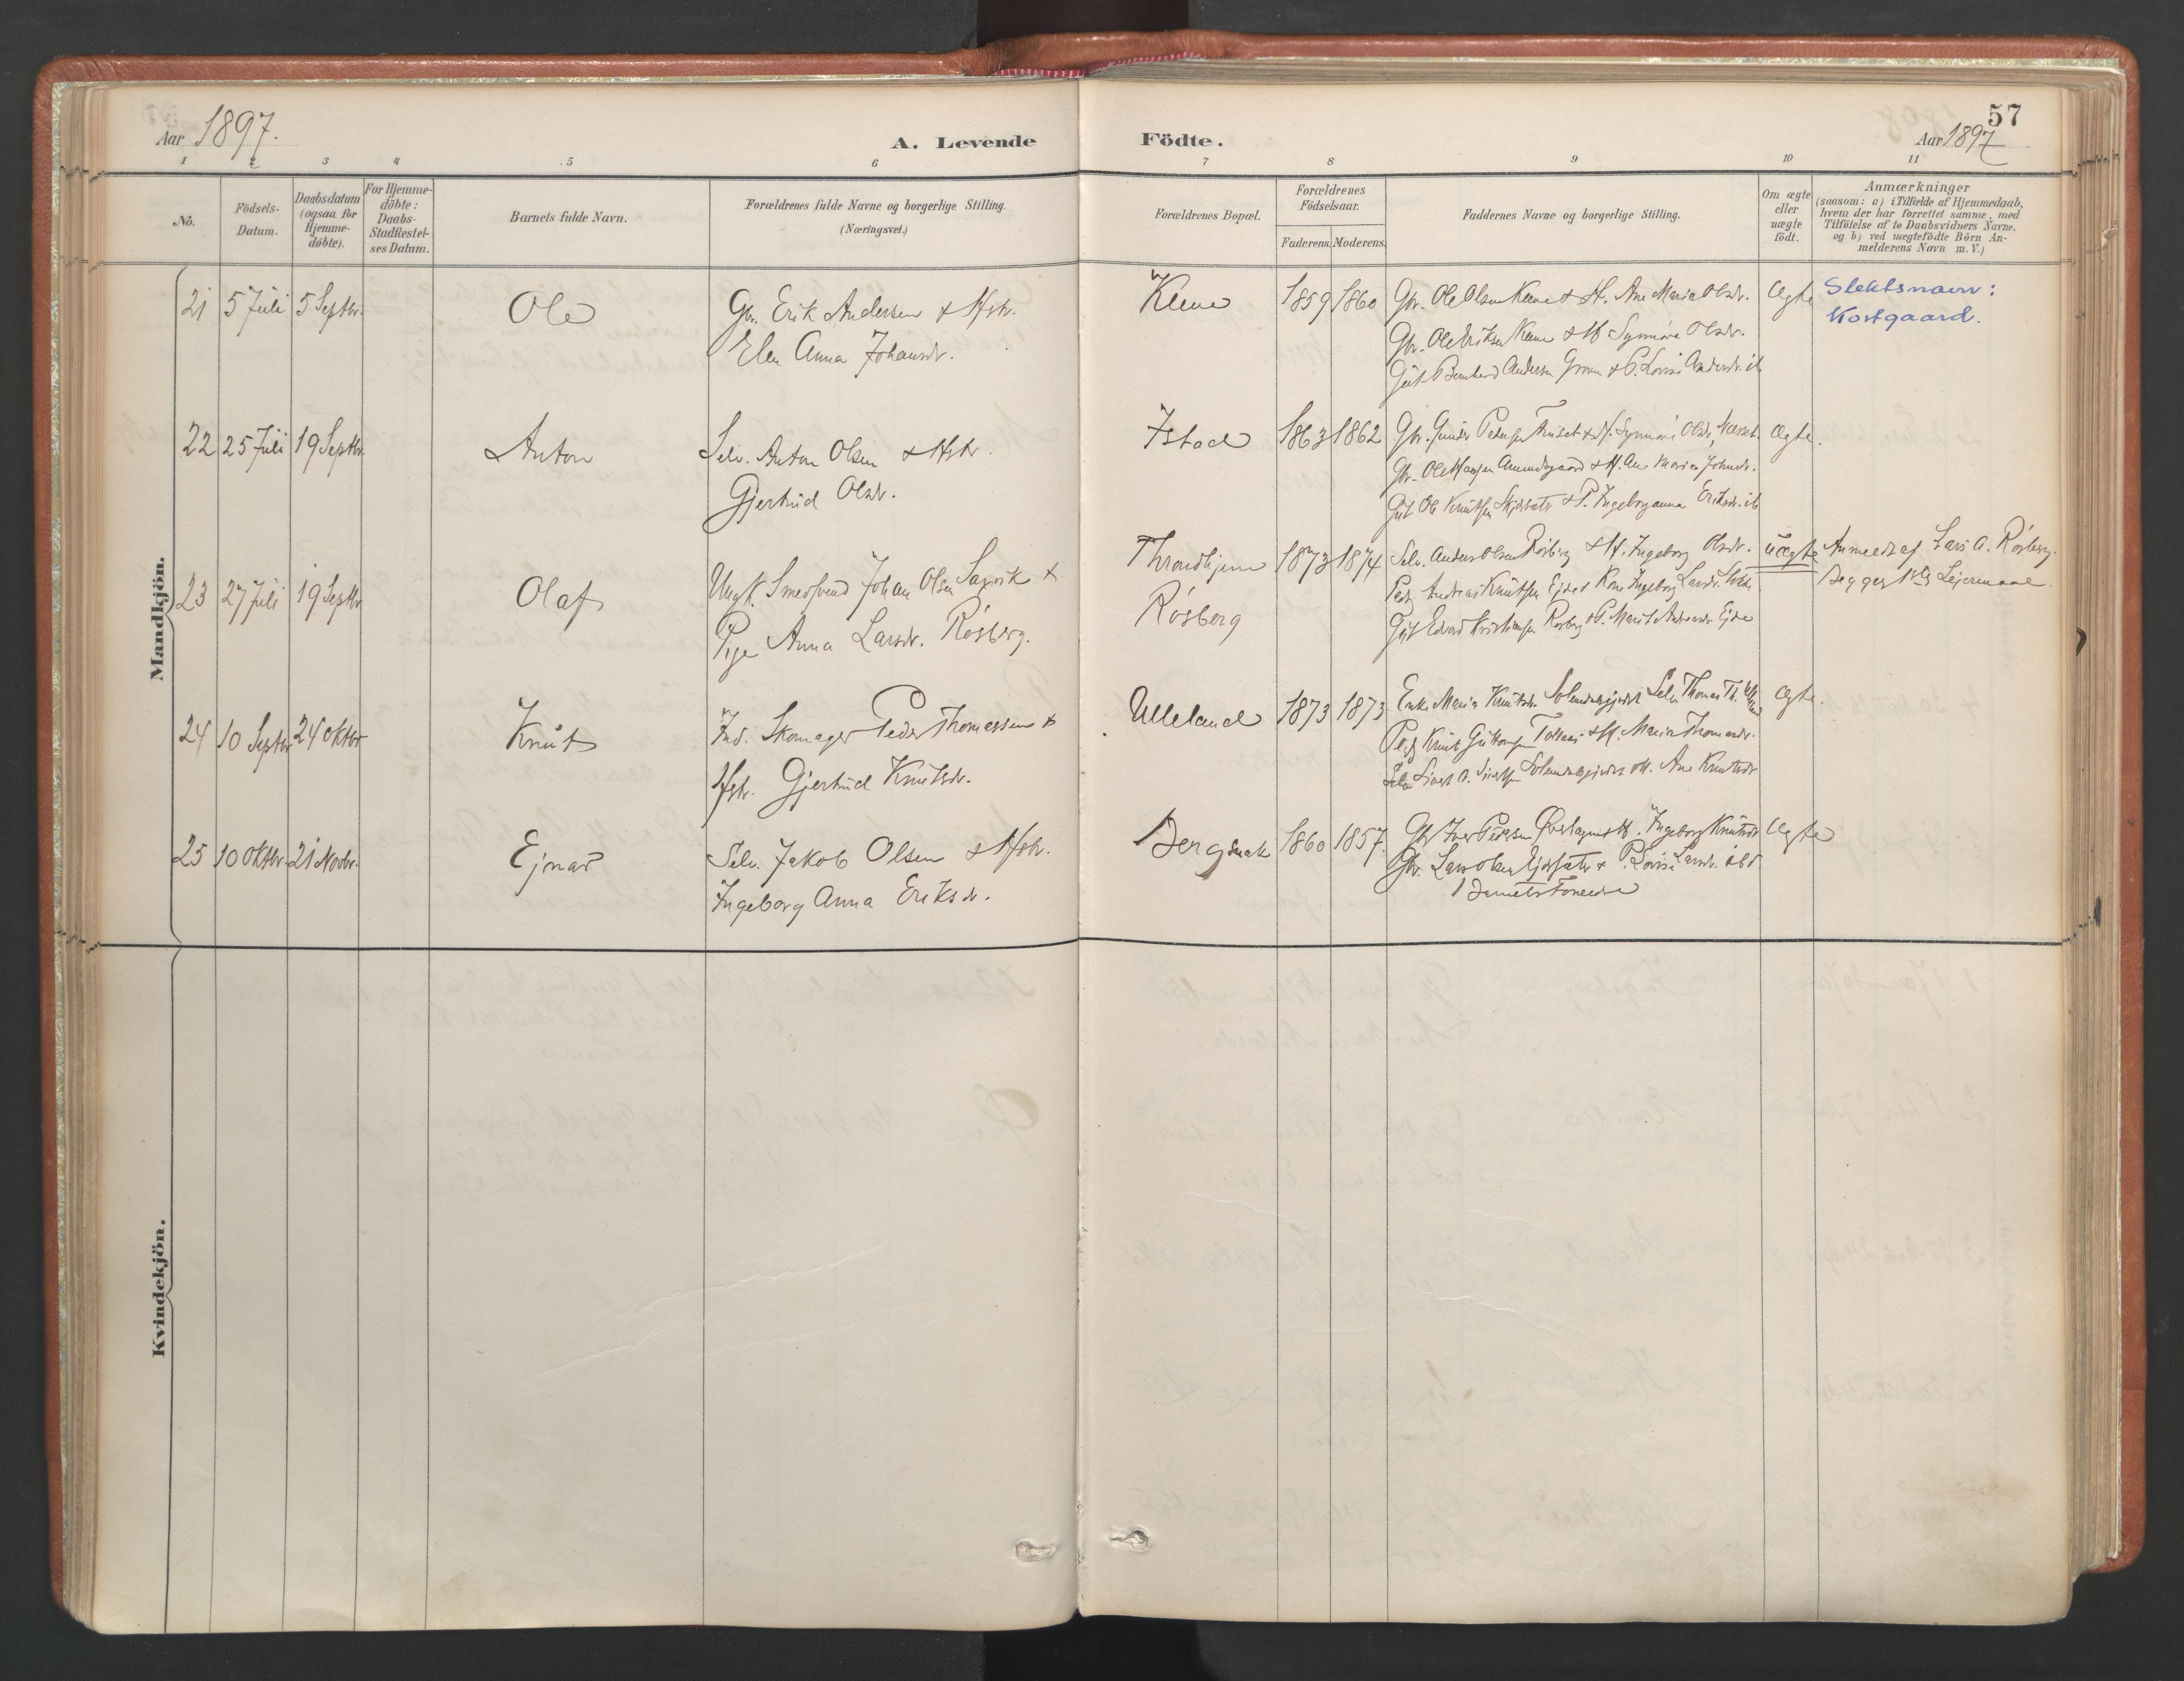 Aar 1897.
A. Levende Födte.
57
Aar 1897
1 2 3 4 5 6 7 8 9 10 11
No.
Födsels-Datum.
Daabsdatum (ogsaa for Hjemme-döbte).
For Hjemme-döbte: Daabs-Stadfestel-ses Datum.
Barnets fulde Navn.
Forældrenes fulde Navne og borgerlige Stilling.
(Næringsvei.)
Forældrenes Bopæl.
Forældrenes Födselsaar.
Faderens. Moderens.
Faddernes Navne og borgerlige Stilling.
Om ægte eller uægte födt.
Anmærkninger
(saasom: a) i Tilfælde af Hjemmedaab, hvem der har forrettet samme, med Tilföielse af to Daabsvidners Navne, og b) ved uægtefödte Börn An-melderens Navn m. V.)
Mandkjön.
21 5 Juli 5 Septbr. Ole
Gbr. Erik Andersen & Hstr.
Elen Anna Johansdr.
Kleve 1859 1860
Gbr. Ole Olsen Kleve & H. Ane Maria Olsdr.
Gbr. Ole Eriksen Kleve & H Synnöve Olsdr.
Gut Bernhard Andersen & P. Lovise Andersdr. ib
Ægte
Slektsnavn:
Kostgaard.
22 25 Juli 19 Septbr. Anton
Selv. Anton Olsen & Hstr.
Gjertrud Olsdr.
Istad 1863 1862
Gbr. Gunder Pedersen & H. Synnövi Olsdr.
Gbr. Ole Hansen & H. Ane Maria Johnsdr.
Gut Ole Knutsen & P. Ingeborganna Eriksdr. ib
Ægte.
23 27 Juli 19 Septbr Olaf
Ungk. Smedsvend Johan Olsen &
Pige Anna Larsdr. Rösberg.
Throndhjem
Rösberg
1873 1874
Selv. Anders Olsen Rösberg & H. Ingeborg Olsdr.
Andreas Knutsen Ejde & Kone Ingeborg Larsdr.
Gut Edvard Kristiansen Rösberg & P. Marit Andreasdr Ejde
uægte
Anmeldt af Lars A. Rösberg.
Begges 1ste Leiermaal.
24 10 Septbr 24 Oktbr Knut
Ind. Skomager Peder Thomassen &
Hstr. Gjertrud Knutsdr.
Ulleland 1873 1873
Enke Maria Knutsdr. Selv. Thomas Th.
Knut & H. Maria Thomasdr.
Sivert A. Sivertsen & H. Ane Knutsdr
Ægte.
25 10 Oktbr. 21 Novbr. Ejnar
Selv. Jakob Olsen & Hstr.
Ingeborg Anna Eriksdr.
1860 1857.
Gbr Iver Pedersen & H. Ingeborg Knutsdr
Gbr. Lars Olsen & P. Lovise Larsdr. ibd.
Barnets Forældre
Ægte
Kvindekjön.